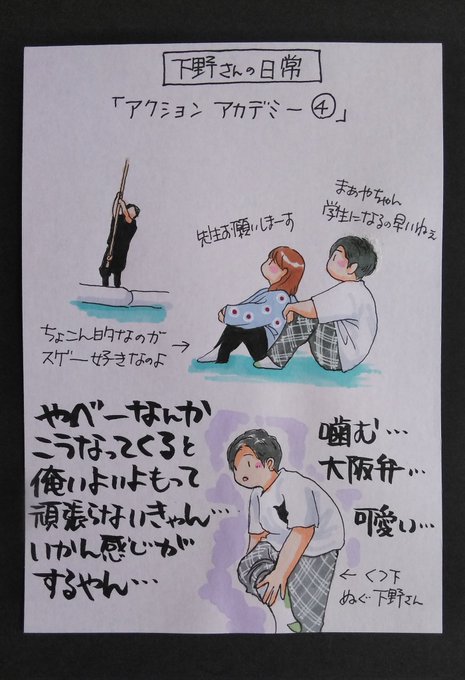 下野さんの日常
「アクション アカデミー④」
まぁやちゃん
学生になるの早いねぇ
先生お願いしまーす
ちょこん的なのが
スゲー好きなのよ →
やべーなんか
こうなってくると
俺いよいよもって
頑張らないきゃん…
いかん感じが
するやん…
噛む…
大阪弁…
可愛い…
← くつ下
ぬぐ下野さん